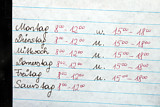 Montag 8⁰⁰ - 12⁰⁰ u. 15⁰⁰ - 18⁰⁰
Dienstag 8⁰⁰ - 12⁰⁰ u. 15⁰⁰ - 18⁰⁰
Mittwoch 8⁰⁰ - 12⁰⁰ u. 15⁰⁰ - 18⁰⁰
Donnerstag 8⁰⁰ - 12⁰⁰ u. 15⁰⁰ - 18⁰⁰
Freitag 8⁰⁰ - 12⁰⁰ u. 15⁰⁰ - 18⁰⁰
Samstag 8⁰⁰ - 12⁰⁰